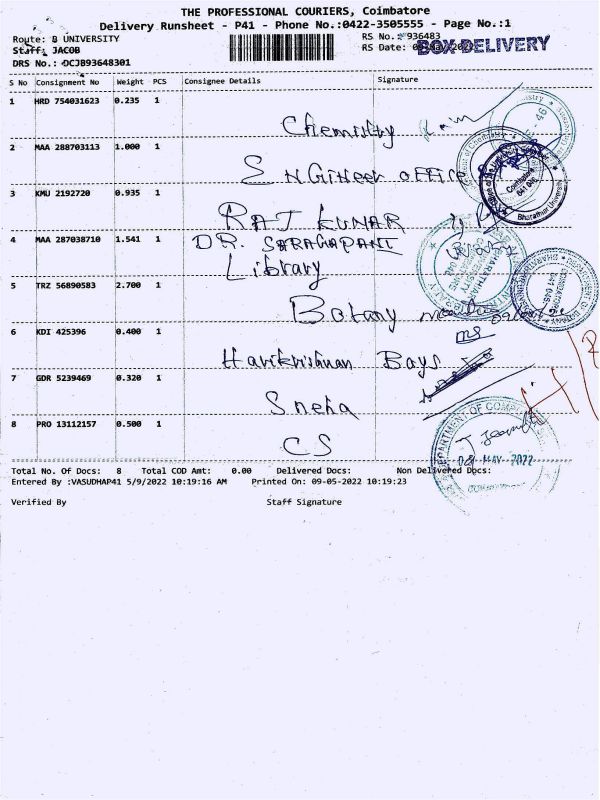 THE PROFESSIONAL COURIERS, Coimbatore
Delivery Runsheet - P41 - Phone No.:0422-3505555 - Page No.:1
Route: B UNIVERSITY RS No.: 936483
Staff: JACOB RS Date: BOX DELIVERY
DRS No.: DCJB93648301
S No Consignment No Weight PCS Consignee Details Signature
1 HRD 754031623 0.235 1
Chemistry
2 MAA 288703113 1.000 1
ENGiNeer OFFICE
3 KMU 2192720 0.935 1
RAJ KUNAR
4 MAA 287038710 1.541 1 DR. SARAGAPANI
Library
5 TRZ 56890583 2.700 1
Botany
6 KDI 425396 0.400 1
Harikrishnan Bays
7 GDR 5239469 0.320 1
Sneha
8 PRO 13112157 0.500 1
CS
DEPARTMENT OF
MAY 2022
Total No. Of Docs: 8 Total COD Amt: 0.00 Delivered Docs: Non Delivered Docs:
Entered By :VASUDHAP41 5/9/2022 10:19:16 AM Printed On: 09-05-2022 10:19:23
Verified By Staff Signature